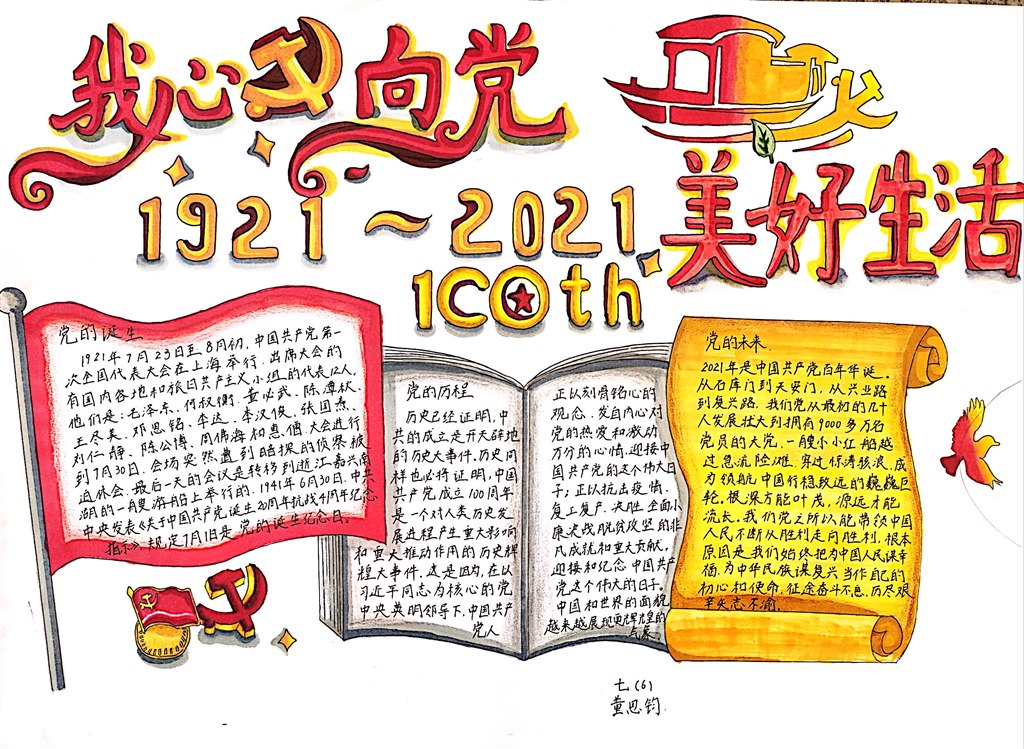 我心向党
美好生活
1921~2021
100th
党的诞生
1921年7月23日至8月初,中国共产党第一
次全国代表大会在上海举行.出席大会的
有国内各地和旅日共产主义小组的代表12人,
他们是:毛泽东、何叔衡、董必武、陈潭秋、
王尽美、邓恩铭、李达、李汉俊、张国焘、
刘仁静、陈公博、周佛海和惠僧大会进行
到7月30日,会场突然遭到暗探的侦察被
迫休会.最后一天的会议是转移到浙江嘉兴南
湖的一艘游船上举行的.1941年6月30日,中共
中央发表《关于中国共产党诞生20周年抗战4周年纪念
指示》,规定7月1日是党的诞生纪念日.
党的历程
历史已经证明,中
共的成立是开天辟地
的历史大事件,历史同
样也必将证明,中国
共产党成立100周年
是一个对人类历史发
展进程产生重大影响
和重大推动作用的历史辉
煌大事件.这是因为,在以
习近平同志为核心的党
中央英明领导下,中国共产
党人
正以刻骨铭心的
观念、发自内心对
党的热爱和激动
万分的心情,迎接中
国共产党的这个伟大日
子;正以抗击疫情、
复工复产、决胜全面小
康决战脱贫攻坚的非
凡成就和重大贡献,
迎接和纪念中国共产
党这个伟大的日子.
中国和世界的面貌
越来越展现更辉煌的
气象
党的未来
2021年是中国共产党百年华诞.
从石库门到天安门,从兴业路
到复兴路,我们党从最初的几十
人发展壮大到拥有9000多万名
党员的大党,一艘小小红船越
过急流险滩,穿过惊涛骇浪,成
为领航中国行稳致远的巍巍巨
轮.根深方能叶茂,源远才能
流长.我们党之所以能带领中国
人民不断从胜利走向胜利,根本
原因是我们始终把为中国人民谋幸
福,为中华民族谋复兴当作自己的
初心和使命,征途奋斗不息,历尽艰
辛矢志不渝.
七(6)
董思钧